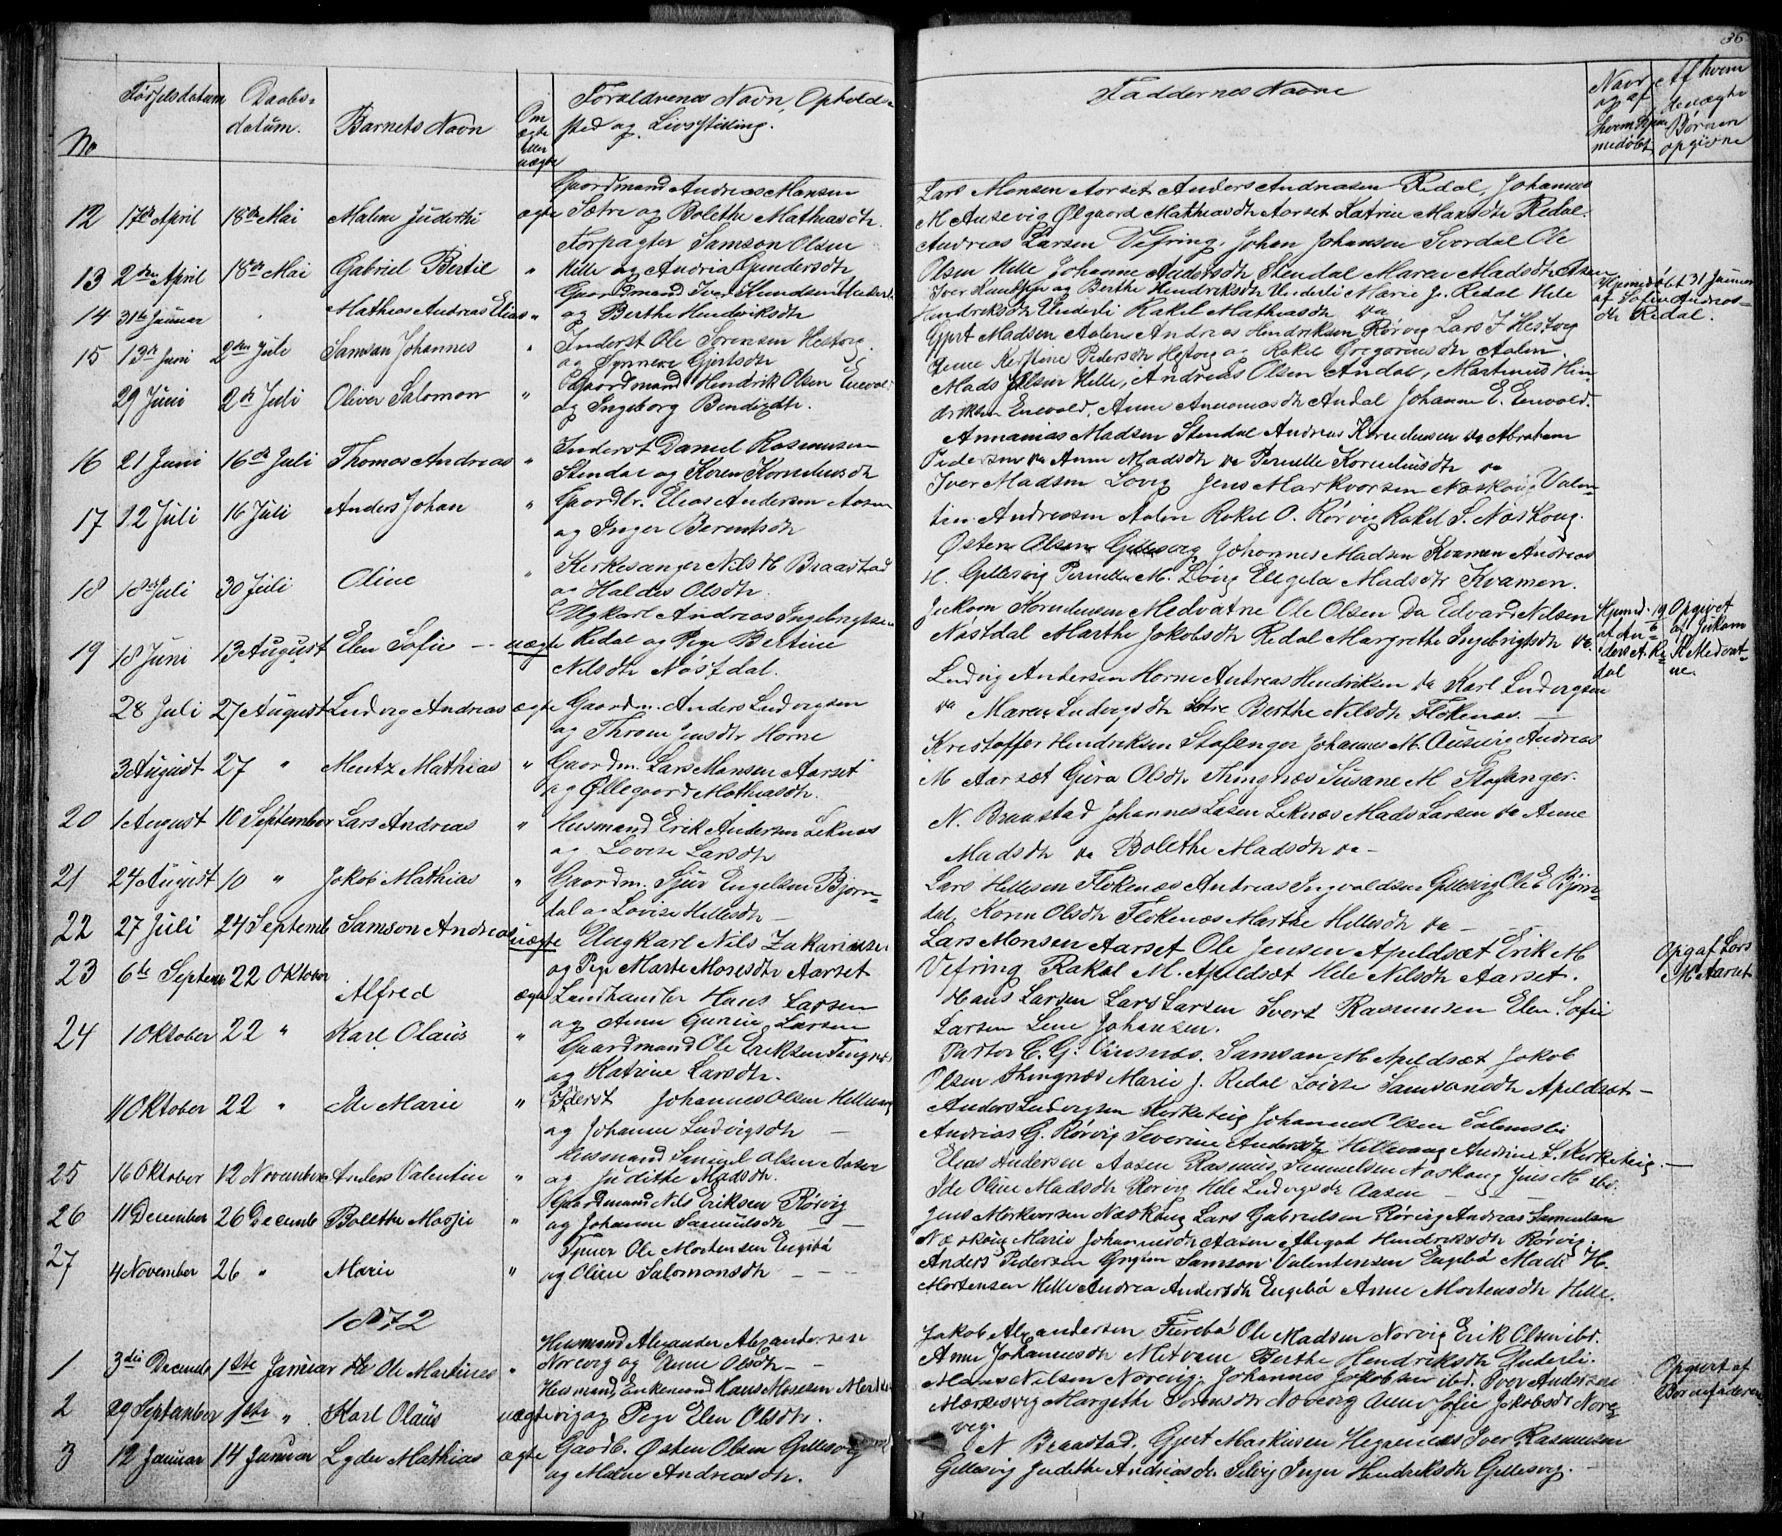 36
No
Fødselsdatum
Daabs-
datum.
Barnets Navn
Om
ægte
eller
uægte
Forældrenes Navn, Opholds-
sted og Livsstilling.
Faddernes Navne
Naar
og af
hvem hjem
medøbt
Af hvem
Uægte
Børnene
opgivne
12 17de April 18de Mai Malene Juditthe ægte Gaardmand Andreas Monsen
Sætre og Bolethe Mathiasdtr.
Lars Monsen Aarset Anders Andreasen Redal, Johannes
M Ausevig Ølgaard Mathiasdtr Aarset Katrine Mansdtr Redal.
13 2den April 18de Mai Gabriel Bertil " Forpagter Samson Olsen
Helle og Andria Gundersdtr
Andreas Larsen Vefring, Johan Johansen Svordal Ole
Olsen Helle Johanne Andersdtr Stendal Maren Madsdtr
14 31te Januar Mathias Andreas Elias " Gaardmand Iver Knudsen Underli
og Berthe Hendriksdtr
Iver Knudsen og Berthe Hendriksdtr Underli Marie J. Redal Hele
Hendriksdtr Underli Rakel Mathiasdtr da
Hjemdøbt 31 Januar
af Sofie Andreas-
dtr Redal.
15 13de Juni 2den Juli Samsan Johannes " Inderst Ole Sørensen Hestvig
og Synneve Gjertsdtr
Gjert Madsen Aalen Andreas Hendriksen Rørvig Lars J Hestvig
Anne Kirstine Pedersdtr Hestvig og Rakel Gregoriusdtr Aalen.
29 Juni 2de Juli Oliver Salomon " Gaardmand Hendrik Olsen Enevold
og Ingeborg Bendixdtr.
Mads Olsen Helle, Andreas Olsen Andal, Martinus Hen-
driksen Enevold, Anne Annaniasdtr Andal Johanne E. Enevold.
16 21 Juni 16de Juli Thomas Andreas " Inderst Daniel Rasmusen
Stendal og Karen Korneliusdtr
Annanias Madsen Stendal Andreas Korneliusen da Abraham
Pedersen da Anne Madsdtr da Pernille Korneliusdtr da
17 12 Juli 16 Juli Anders Johan " Gaardbr. Elias Andersen Aasen
og Inger Berentsdtr
Iver Madsen Løvig Jens Markvorsen Naskaug Valen-
tin Andreasen Aalen Rakel O. Rørvig Rakel S. Naskaug.
18 18de Juli 30 Juli Oline " Kirkesanger Nils H Braastad
og Haldis Olsdtr.
Østen Olsen Gillesvig Johannes Madsen Kvamen Andreas
H. Gillesvig Pernille M. Løvig Elegela Madsdtr Kvamen.
19 18 Juni 13 August Elen Sofie uægte Ugkarl Andreas Ingebrigtsen
Redal og Pige Bertine
Nilsdtr Nastdal.
Joekom Korneliusen Medvatne Ole Olsen Da Edvard Nilsen
Nastdal Marthe Jakobsdtr Redal Margrethe Ingebrigtsdtr da.
Hjemd. 19/6
af An-
ders A. Re-
dal
Opgivet
af Jokam
K Medvat-
ne
28 Juli 27 August Ludvig Andreas ægte Gaardm. Anders Ludvigsen
og Throne Jensdtr Horne
Ludvig Andersen Horne Andreas Hendriksen da Karl Ludvigsen
da Maren Ludvigsdtr Sætre Berthe Nilsdtr Flokenæs.
3 August 27 " Mentz Mathias " Gaardm. Lars Monsen Aarset
og Øllegaard Mathiasdtr.
Kristoffer Hendriksen Stafanger Johannes M. Ausevig Andreas
M Aarset Guro Olsdtr Thingnæs Susane M Stafanger.
20 1 August 10 September Lars Andreas " Husmand Erik Andersen Leknæs
og Lovise Larsdtr
N. Braastad Johannes Larsen Leknæs Mads Larsen da Anne
Madsdtr da Bolethe Madsdtr da
21 24 August 10 " Jokob Mathias " Gaardm. Sjur Engelsen Bjørn-
dal og Lovise Hellesdtr
Lars Hellesen Flokenæs Andreas Ingvaldsen Gillesvig Ole E Bjørn-
dal, Karen Olsdtr Flokenæs Marthe Hellesdtr da
22 27 Juli 24 Septemb Samson Andreas uægte Ungkarl Nils Zakariasen
og Pige Marte Mosesdtr Aarset
Lars Monsen Aarset Ole Jensen Apeldsæt Erik M
Vefring Rakel M. Apeldsæt Hele Nilsdtr Aarset.
Opg af Lars
M. Aarset
23 6te Septem 22 Oktober Alfred ægte Landhandler Hans Larsen
og Anne Gurine Larsen
Hans Larsen Lars Larsen Sivert Rasmusen Elen Sofie
Larsen Lene Johansen.
24 1 Oktober 22 " Karl Olaus " Gaardmand Ole Eriksen Tingnæs
og Katrine Larsdtr.
Pastor C. G. Vinsnæs. Samsan M Apeldsæt Jokob
Olsen Thingnæs Marie J. Redal Lovise Samsonsdtr Apeldsæt
11 Oktober 22 " Ole Marie " Inderst Johannes Olsen Hellevaag
og Johanne Ludvigsdtr
Anders Ludvigsen Kirketeig Johannes Olsen Solemsli
Andreas G. Rørvig Severine Andersdtr Hellevaag Andrine L. Kirketeig.
25 16 Oktober 12 November Anders Valentin " Husmand Samuel Olsen Aasen
og Judithe Madsdtr.
Elias Andersen Aasen Rasmus Samuelsen Naskaug Jens M ibd.
Ide Oline Madsdtr Rørvig Hele Ludvigsdtr Aasen
26 11 December 26 Decemb Bolethe Masje " Gaardmand Nils Eriksen Rørvig
og Johanne Samuelsdtr
Jens Markvorsen Naskaug Lars Gabrielsen Rørvig Andreas Samuelsen
Naskaug Marie Johannesdtr Aasen Abigal Hendriksdtr Rørvig.
27 4 November 26 " Marie " Ole Mortensen Engebø
og Oline Salomonsdtr
Anders Pedersen Samson Valentinsen Engebø Mads H.
Mortensen Helle Andrea Andersdtr Engebø Anne Mortensdtr Helle.
1872
1 3die Decemb 1ste Januar Ole Martinus " Husmand Alexander Alexandersen
Norevig og Anne Olsdtr
Jakob Alexandersen Fureba Ole Madsen Norvig Erik Olsen ibd.
Anne Johannesdtr Metvane Berthe Hendriksdtr Underli.
2 29 September 1ste " Karl Olaus uægte Husmand Enkemand Hans Mosesen Merkes-
vig og Pige Elen Olsdtr.
Hans Nilsen Norevig, Johannes Jakobsen ibd. Iver Andersen
Merkesvig Margethe Sørensdtr Norevig Anne Sofie Jokobsdtr Nore-
vig.
Opgivet af
Barnefaderen
3 12 Januar 14 Januar Lyder Mathias ægte Gaardb. Østen Olsen Gillesvig
og Malene Andreasdtr.
N Braastad, Gjert Markusen Hegrenæs Iver Rasmusen
Gillesvig Judithe Andreasdtr Selvig Inger Hendriksdtr Gillesvig.